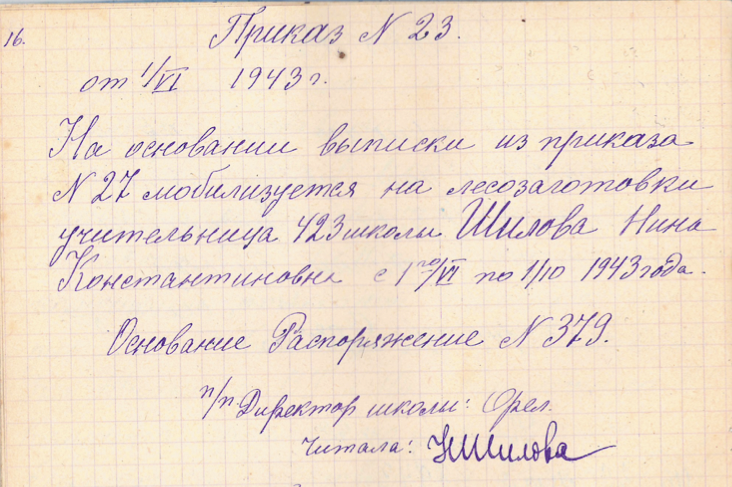 16.
Приказ N 23.
от 1/VI 1943 г.
На основании выписки из приказа
N 27 мобилизуется на лесозаготовки
учительница 423 школы Шилова Нина
Константиновна с 1го/VI по 1/10 1943 года.
Основание Распоряжение N 379.
п/п Директор школы: Орел.
Читала: НШилова